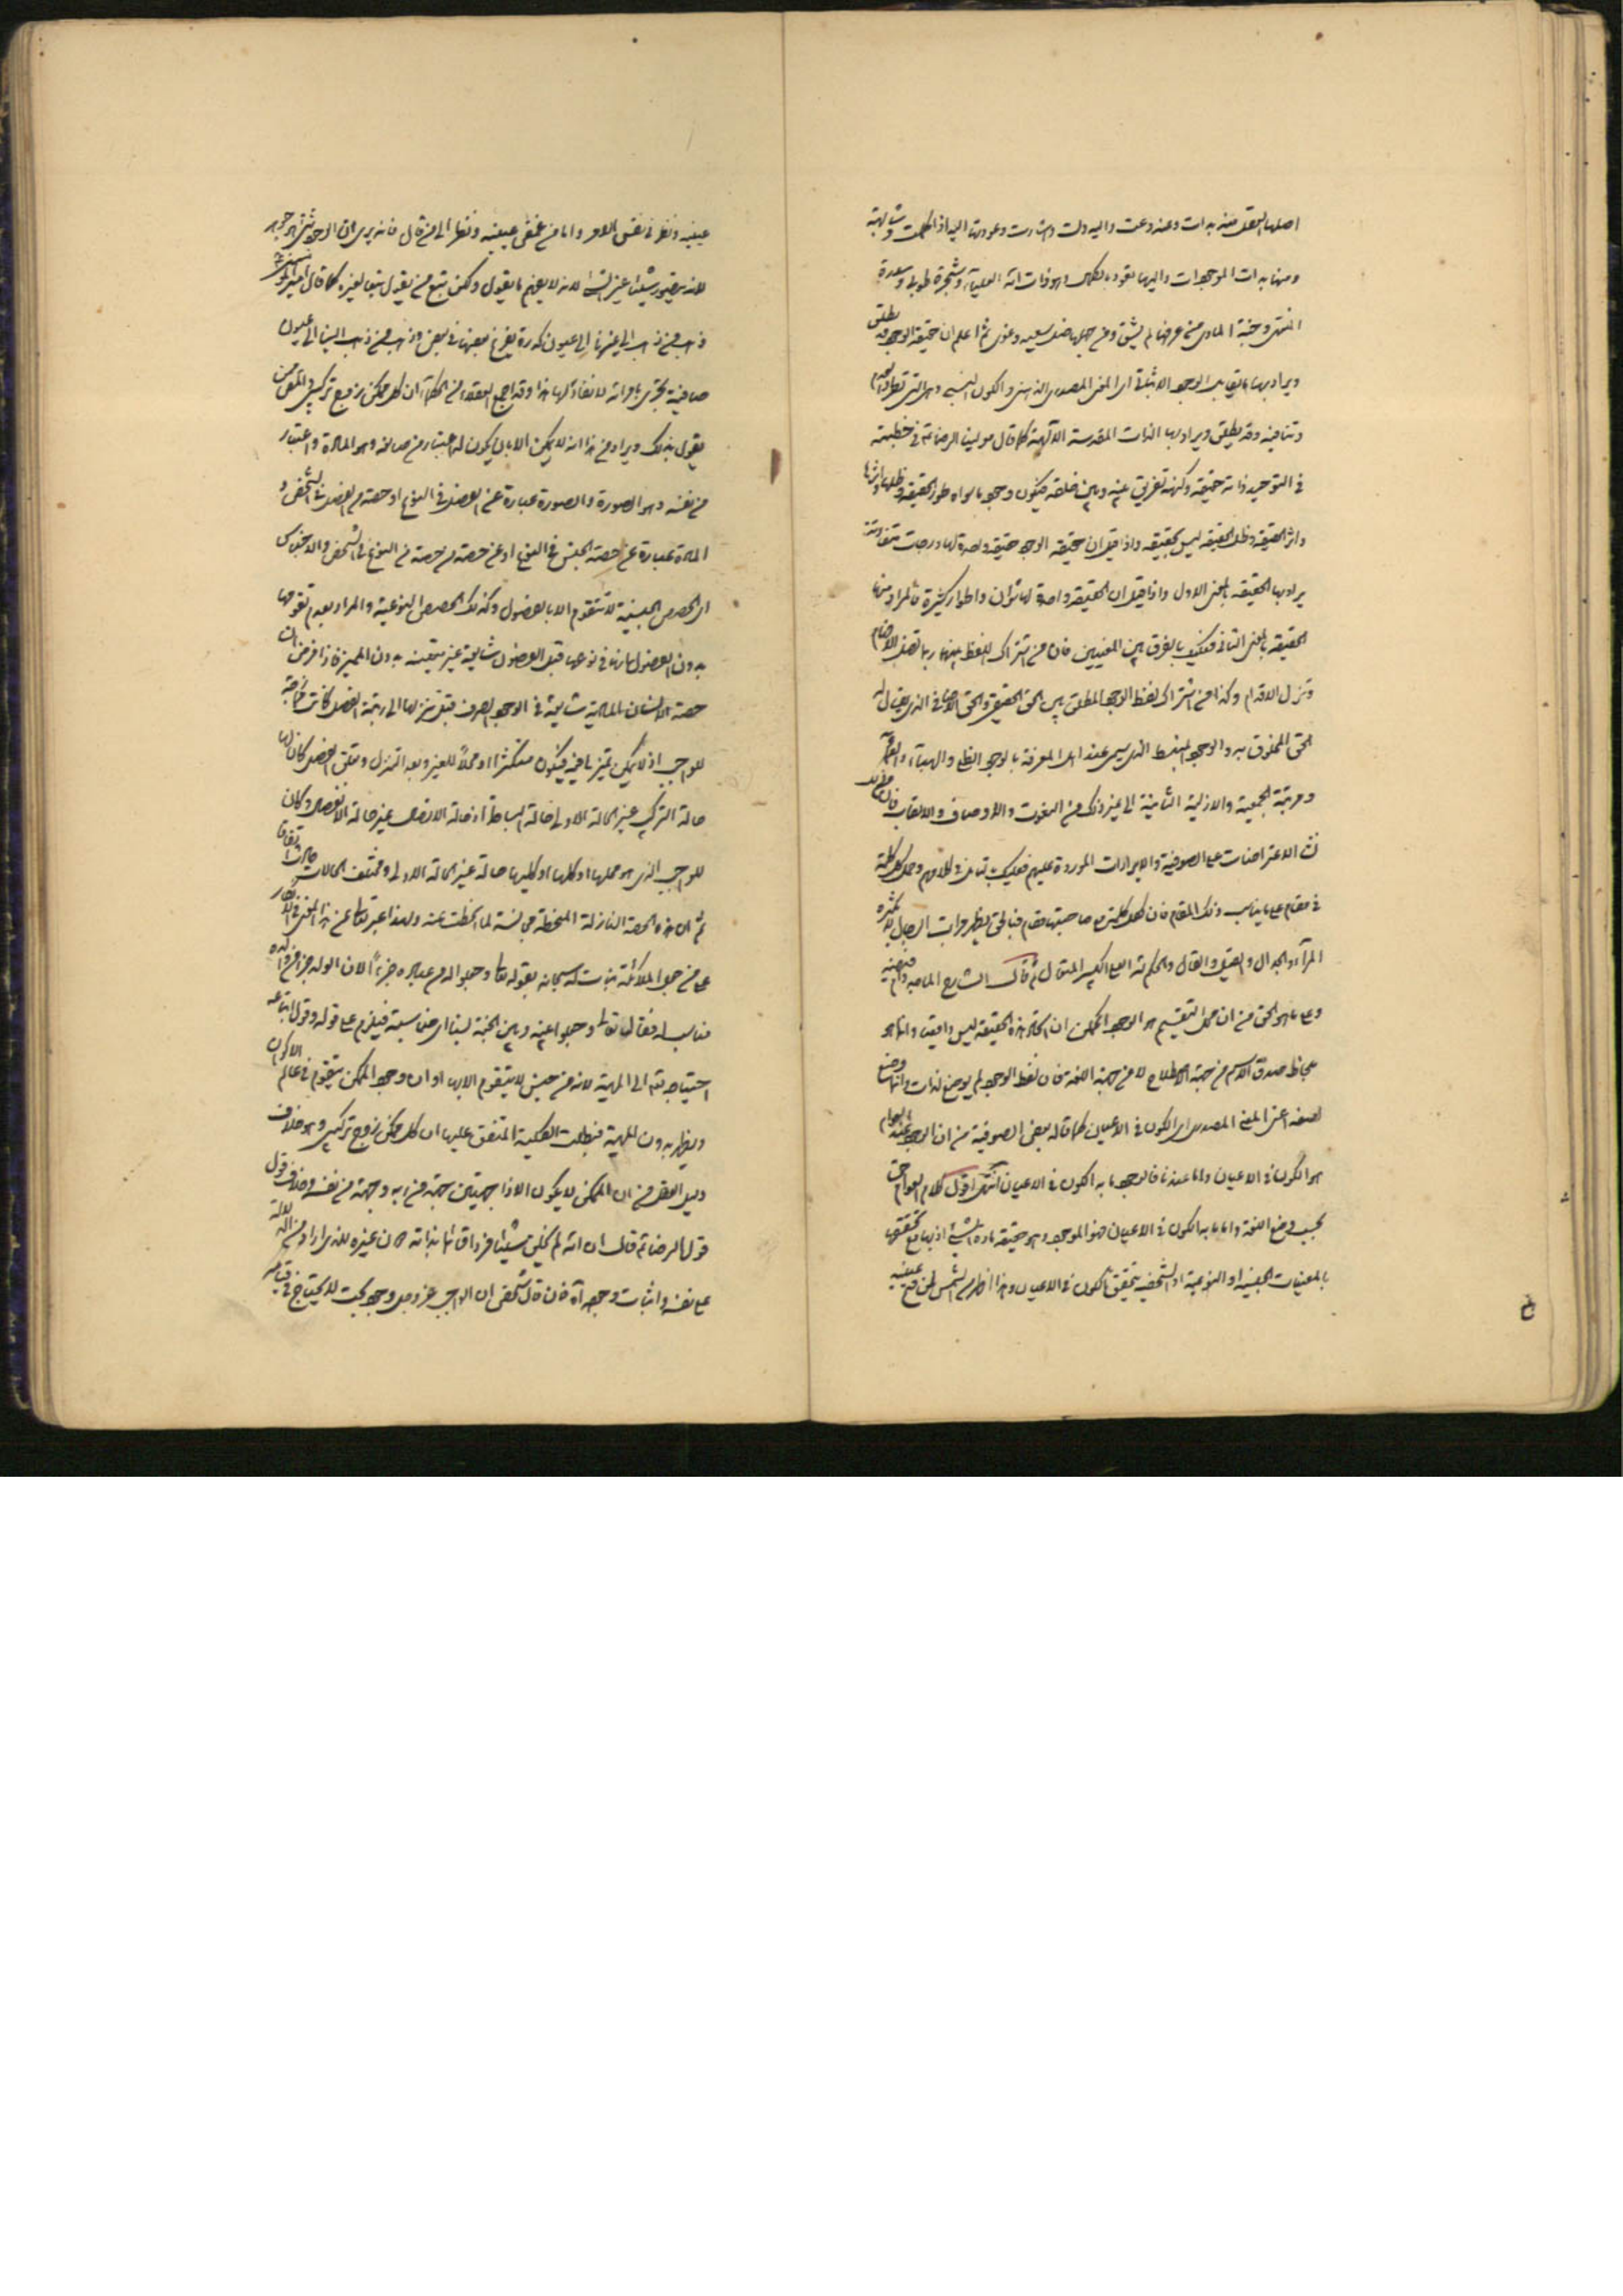 اصلها العقل منه بدات وعنه وعت واليه دلت واشارت وعودها اليه اذا كملت وشابهته
ومنها بدات الموجودات واليها تعود بالكمال وهو ذات الله العليا وشجرة طوبى وسدرة
المنتهى وجنة الماوى من عرفها لم يشق ومن جهلها ضل سعيه وغوى ثم اعلم ان حقيقة الوجود قد يطلق
ويراد بها ما يقابل الوجود الاثباتى اى المعنى المصدرى الذهنى والكون النسبى وهى التى تطارد العدم
وتنافيه وقد يطلق ويراد بها الذات المقدسة الالهية كما قال مولينا الرضا ع فى خطبته
فى التوحيد ذاته حقيقة وكنهه تفريق بينه وبين خلقه فيكون وجود ما سواه طور الحقيقة وظلها واثرها
واثر الحقيقة وظل الحقيقة ليس بحقيقة واذا قيل ان حقيقة الوجود حقيقة واحدة لها درجات متفاوتة
يراد بها الحقيقة بالمعنى الاول واذا قيل ان الحقيقة واحدة لها شؤان واطوار كثيرة فالمراد منها
الحقيقة بالمعنى الثانى فعليك بالفرق بين المعنيين فان من اشتراك اللفظ بينهما ربما تضل الافهام
وتزل الاقدام وكذا من اشتراك لفظ الوجود المطلق بين الحق الحقيقى والحق الاضافى الذى يقال له
الحق المخلوق به والوجود المنبسط الذى يسمى عند اهل المعرفة بالوجود الظلى والهباء والعماء
ومرتبة الجمعية والازلية الثانية الى غير ذلك من النعوت والاوصاف والالقاب فان
الاعتراضات على الصوفية والايرادات الموردة عليهم فعليك بتامل فى كلامهم وحمل كل كلمة
فى مقام على ما يناسب ذلك المقام فان لكل كلمة مع صاحبتها مقام فبالحق يظهر مراتب الرجال لا بكثرة
المراء والجدال والقيل والقال والحكم لله العلى الكبير المتعال ثم قال الشارح
وعلى ما هو الحق من ان محل التقسيم هو الوجود الممكن ان اتحاد هذه الحقيقة ليس واقعيا وانما هو
بلحاظ صدق الاسم من جهة الاطلاع لا من جهة اللغة فان لفظ الوجود لم يوضع لذات وانما وضع
لصفة اعنى المعنى المصدرى اى الكون فى الاعيان كما قاله بعض الصوفية من ان الوجود عند العوام
هو الكون فى الاعيان واما عندنا فالوجود ما به الكون فى الاعيان انتهى اقول كلام العوام حق
بحسب وضع اللغة واما ما به الكون فى الاعيان فهو الموجود وهو حقيقة مادة الشئ اذ بها مع تحققها
بالمعينات الجنسية او النوعية او الشخصية يتحقق الكون فى الاعيان وهذا اظهر من الشمس لمن فتح عينيه
عينيه ونظر فى نفس الامر واما من غمض عينيه ونظر الى من قال فانه يرى ان الوجود شئ هو جوهر
لانه يتصور شيئا غير الشئ لانه لا يفهم ما يقول ولكن تبع من يقول تبعا لغيره كما قال امير المؤمنين ع
ذهب من ذهب الى غيرنا الى عيون كدرة يفرغ بعضها فى بعض وذهب من ذهب الينا الى عيون
صافية تجرى بامر الله لا نفاد لها هذا وقد اجمع العقلاء من الحكماء ان كل ممكن زوج تركيبى
يقول بذلك ويراد من هذا انه لا يمكن الا بان يكون له اعتبار من صانعه وهو المادة واعتبار
من نفسه وهو الصورة والصورة عبارة عن الفصل فى النوع او حصة من الفصل فى الشخص و
المادة عبارة عن حصة الجنس فى النوع او عن حصة من حصة من النوع فى الشخص والاجناس
اى الحصص الجنسية لا تتقوم الا بالفصول وكذلك الحصص النوعية والمراد بعدم تقومها
بدون الفصول انها فى نوعها قبل الفصول شايعة غير متعينة بدون المميزة فاذا فرض ان
حصة الانسان المادية شايعة فى الوجود الصرف قبل تنزلها الى رتبة الفصل كانت
للواجب اذ لا يمكن تميز ما فيه فيكون متكثرا او محلا للغير وبعد التنزل وتعلق الفصل كان لها
حالة التركيب غير الحالة الاولى حالة البساطة او حالة الاتصال غير حالة الانفصال وكان
للواجب الذى هو محلها او كلها او كليها حالة غير الحالة الاولى ومختلف الحالات حادث اتفاقا
ثم ان هذه الحصة النازلة المنحطة مجانسة لما انحطت عنه ولهذا عبر تعالى عن هذا المعنى فى الانكار
على من جعل الملائكة بنات له سبحانه بقوله تعالى وجعلوا له من عباده جزءا لان الولد جزء من والده
مناسب له فقال تعالى وجعلوا بينه وبين الجنة نسبا اى مناسبة فيلزم على قوله وقول اتباعه
احتياجه تعالى الى المهية لانه من حيث لا يتقوم الا بها او ان وجود الممكن يتقوم فى عالم الاكوان
ويظهر بدون المهية فبطلت الكلية المتفق عليها ان كل ممكن زوج تركيبى وهو خلاف
دليل العقل من ان الممكن لا يكون الا ذا جهتين جهة من ربه وجهة من نفسه وخلاف قول
قول الرضا ع قال ان الله لم يخلق شيئا فردا قائما بذاته دون غيره للذى اراد من الدلالة
على نفسه واثبات وجوده فان قال شخص ان الواجب عز وجل وجود بحت لا يحتاج فى قيامه